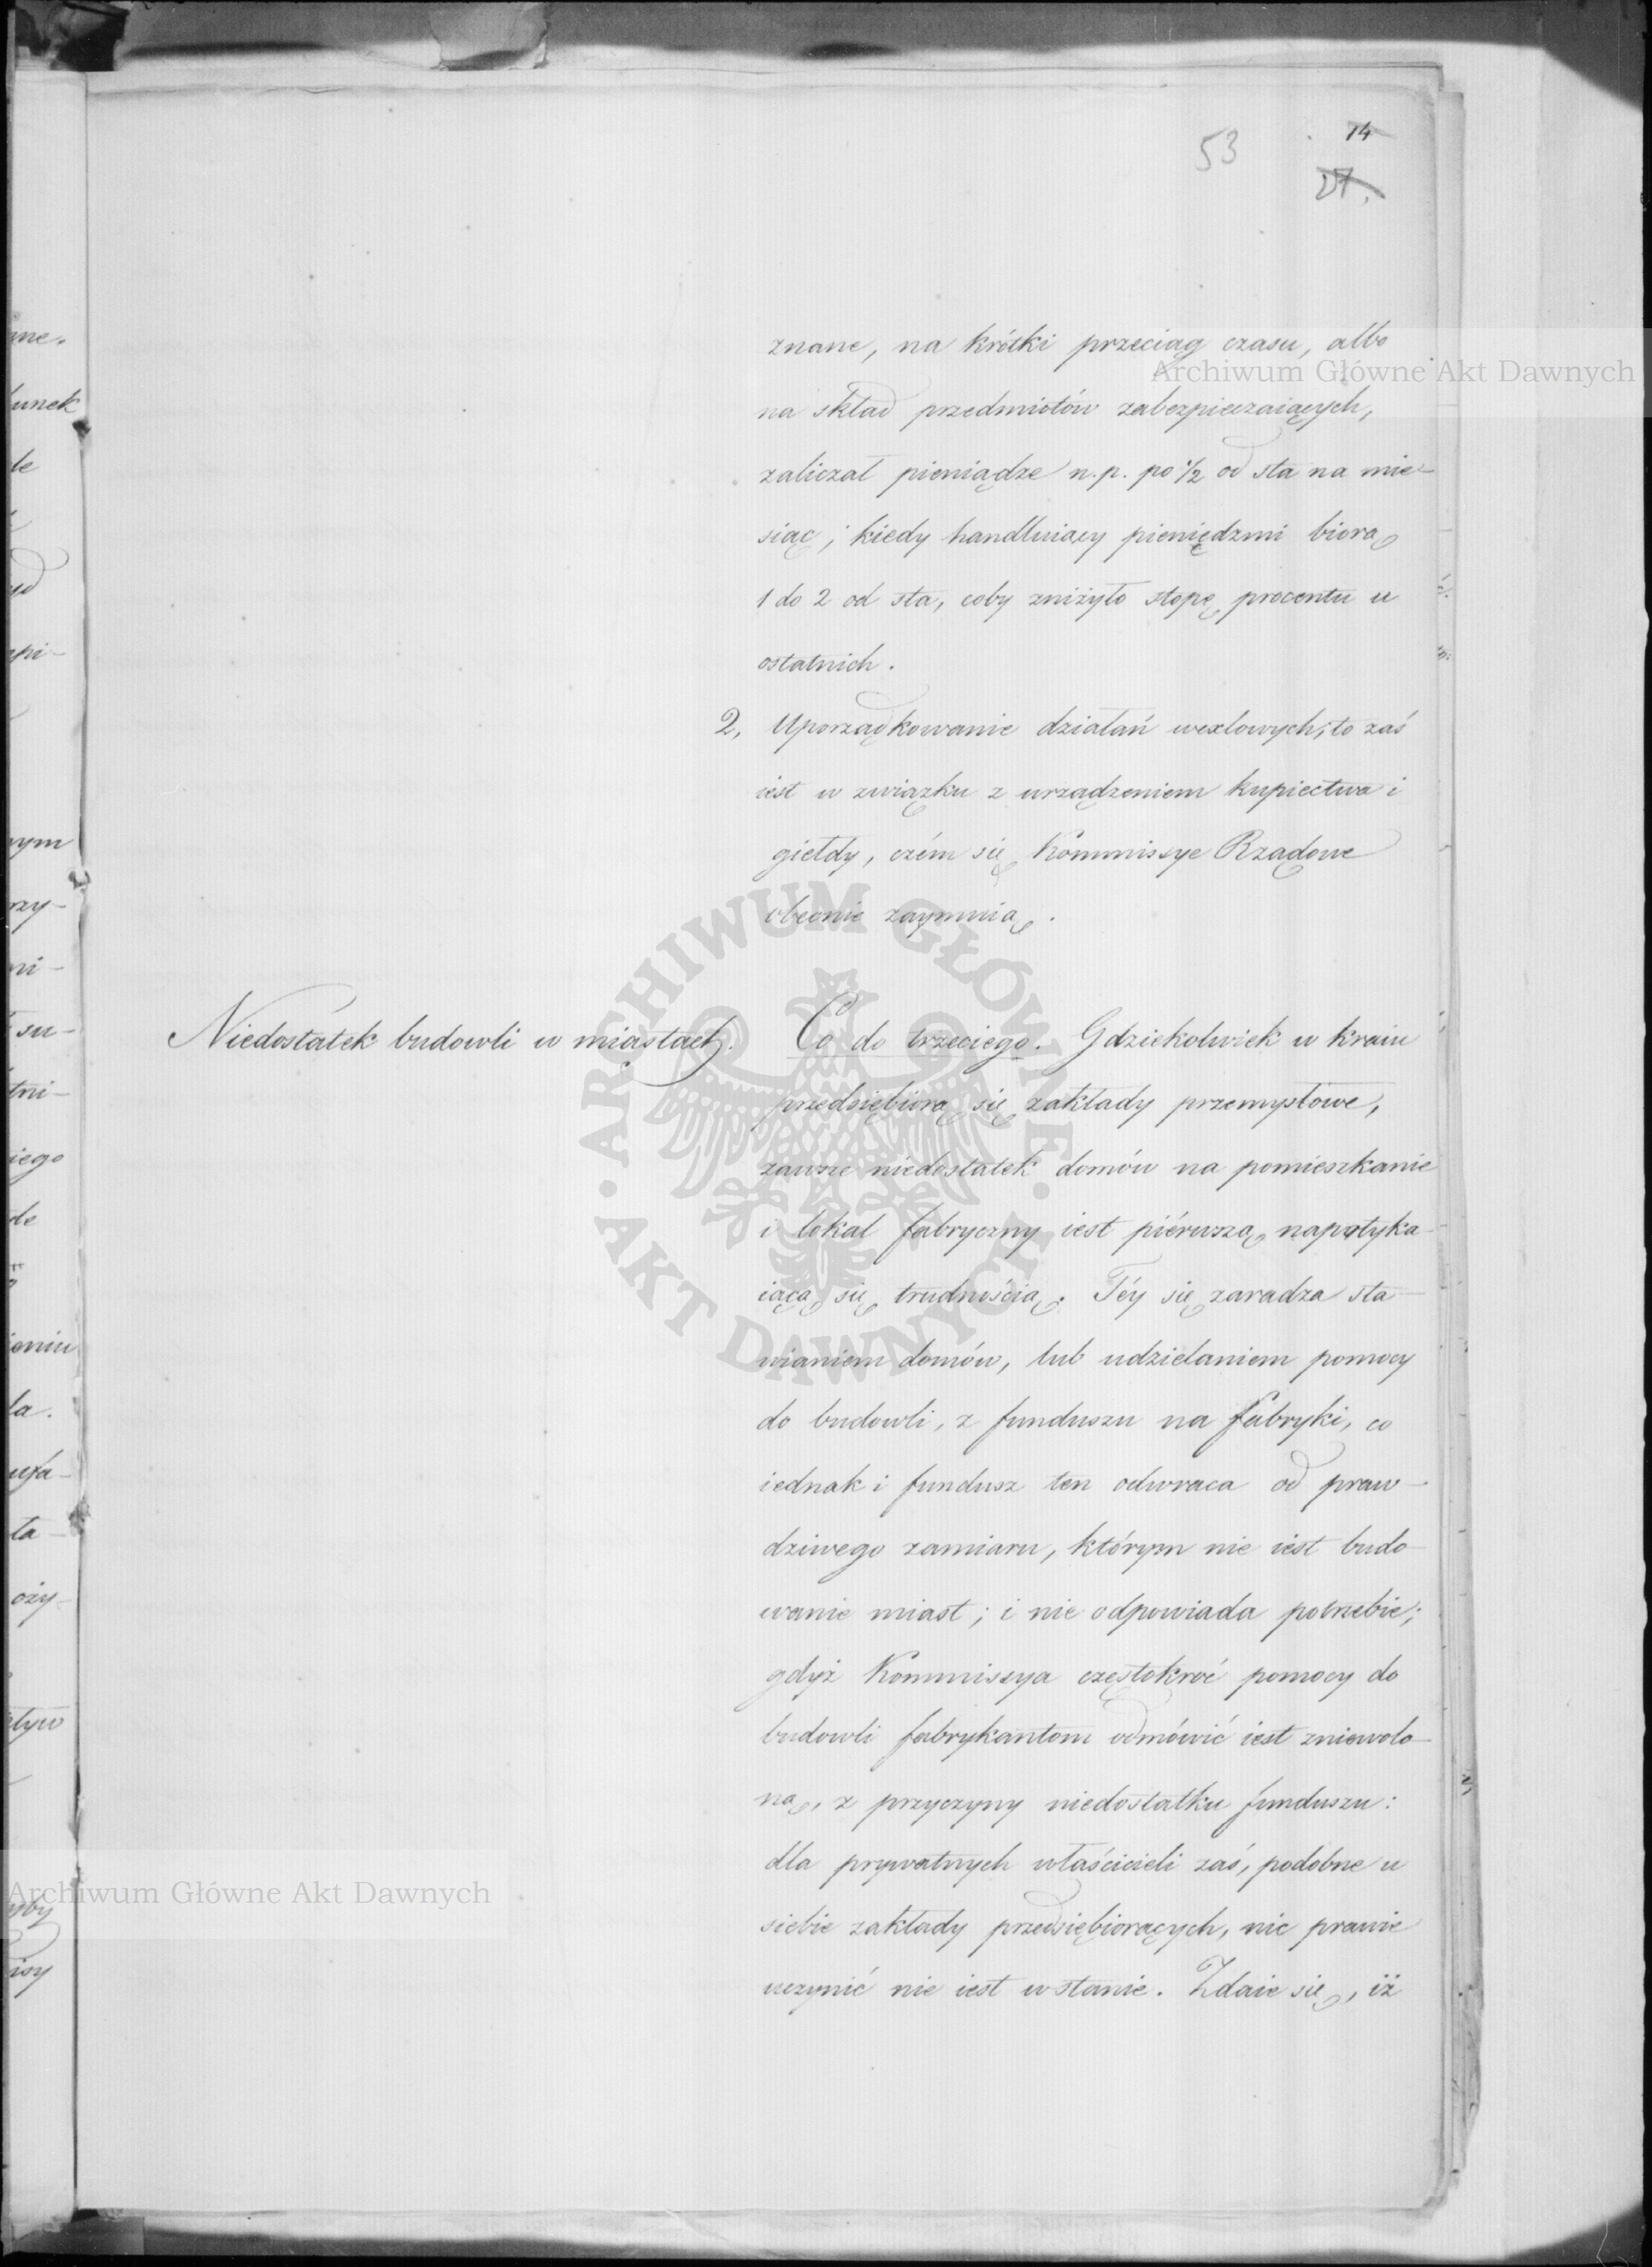 53
14
27.
znane, na krótki przeciąg czasu, albo
na skład przedmiotów zabezpieczaiących,
zaliczał pieniądze n.p. po ½ od sta na mie-
siąc; kiedy handluiący pieniędzmi biorą
1 do 2 od sta, coby zniżyło stopę procentu u
ostatnich.
2, Uporządkowanie działań wexlowych; to zaś
iest w związku z urządzeniem kupiectwa i
giełdy, czém się Kommissye Rządowe
obecnie zaymuią.
Niedostatek budowli w miastach.
Co do trzeciego. Gdziekolwiek w kraiu
przedsiębiorą się zakłady przemysłowe,
zawsze niedostatek domów na pomieszkanie
i lokal fabryczny iest piérwszą napotyka-
iącą się trudnością. Téy się zaradza sta-
wianiem domów, lub udzielaniem pomocy
do budowli, z funduszu na fabryki, co
iednak i fundusz ten odwraca od praw-
dziwego zamiaru, którym nie iest budo-
wanie miast; i nie odpowiada potrzebie;
gdyż Kommissya częstokroć pomocy do
budowli fabrykantom odmówić iest zniewolo-
ną, z przyczyny niedostatku funduszu:
dla prywatnych właścicieli zaś, podobne u
siebie zakłady przedsiębiorących, nic prawie
uczynić nie iest wstanie. Zdaie się, iż
Archiwum Główne Akt Dawnych
Archiwum Główne Akt Dawnych
ARCHIWUM GŁÓWNE · AKT DAWNYCH ·